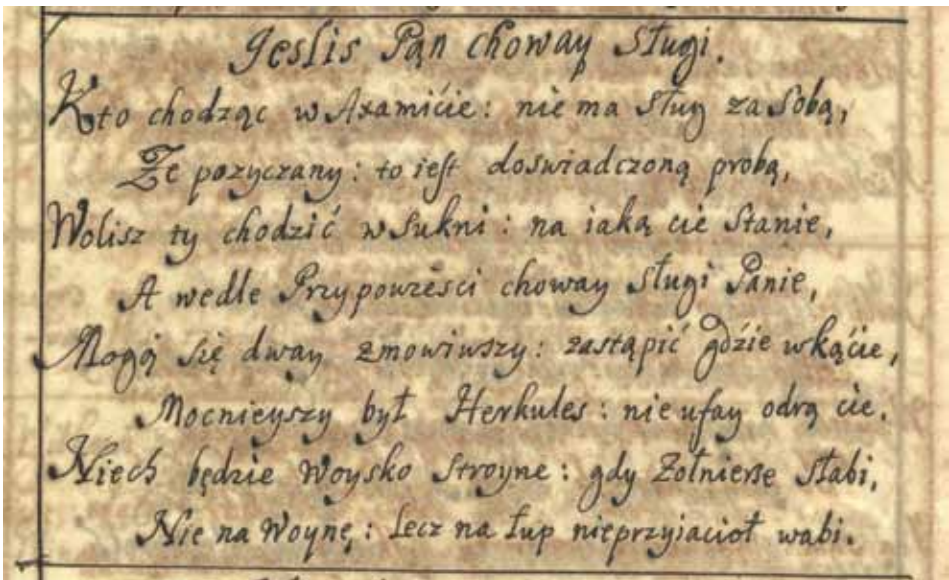 Jeslis Pąn choway Sługi.
Kto chodząc w Axamićie: nie ma Sług za Sobą,
Ze pozyczany: to iest doswiadczoną probą,
Wolisz ty chodzić w Sukni: na iaką cie Stanie,
A wedle Przypowieści choway Sługi Panie,
Mogą się dway zmowiwszy: zastąpić gdźie w kąćie,
Mocnieyszy był Herkules: nie ufay odrą cie.
Niech będzie Woysko Stroyne: gdy Zołnierze Słabi,
Nie na Woynę: Lecz na Łup nieprzyiacioł wabi.